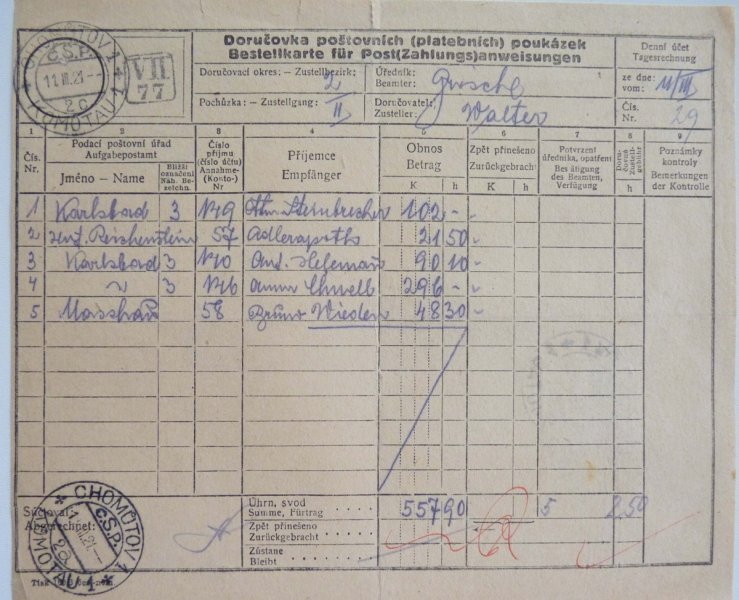 CHOMUTOV 1
Č.S.P.
11.III.21
2c
KOMOTAU 1
VII
77
Doručovka poštovních (platebních) poukázek
Bestellkarte für Post(Zahlungs)anweisungen
Denní účet
Tagesrechnung
Doručovací okres: – Zustellbezirk: 2
Úředník:
Beamter:
ze dne:
vom: 11/III
Pochůzka: – Zustellgang: II
Doručovatel:
Zusteller: Walter
Čís.
Nr. 29
1 2 3 4 5 6 7 8 9
Čís.
Nr.
Podací poštovní úřad
Aufgabepostamt
Jméno – Name
Bližší
označení
Näh. Be-
zeichn.
Číslo
příjmu
(číslo účtu)
Annahme-
(Konto-)
Nr
Příjemce
Empfänger
Obnos
Betrag
K h
Zpět přineseno
Zurückgebracht
K h
Potvrzení
úředníka, opatření
Bestätigung
des Beamten,
Verfügung
Doru-
čovné
Zustell-
gebühr
h
Poznámky
kontroly
Bemerkungen
der Kontrolle
1 Karlsbad 3 102 –
2 Reichenstein 57 21 50
3 Karlsbad 3 90 10
4 " 3 296 –
5 58 Bruno Wieden 48 30
Súčtoval:
Abgerechnet:
Úhrn, svod
Summe, Fürtrag
557 90 5 2.50
Zpět přineseno
Zurückgebracht
Zůstane
Bleibt
CHOMUTOV 1
Č.S.P.
III.21
2a
KOMOTAU 1